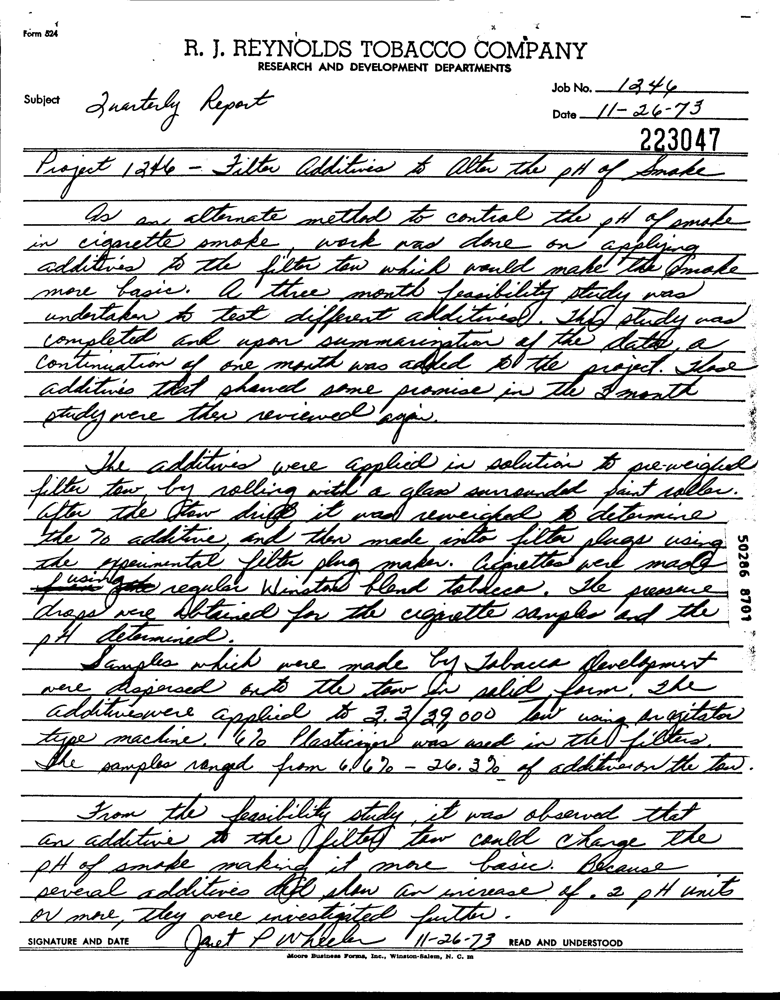 Form 524
R. J. REYNOLDS TOBACCO COMPANY
RESEARCH AND DEVELOPMENT DEPARTMENTS
Job No. 1246
Subject Quarterly Report
Date 11-26-73
223047
Project 1246 - Filter Additives to Alter the pH of Smoke
As an alternate method to control the pH of smoke
in cigarette smoke, work was done on applying
additives to the filter tow which would make the smoke
more basic. A three month feasibility study was
undertaken to test different additives. This study was
completed and upon summarization of the data, a
continuation of one month was added to the project. Those
additives that showed some promise in the 3 month
study were then reviewed again.
The additives were applied in solution to pre-weighed
filter tow by rolling with a glass surrounded paint roller.
After the tow dried it was reweighed to determine
the % additive, and then made into filter plugs using
the experimental filter plug maker. Cigarettes were made
using regular Winston blend tobacco. The pressure
drops were obtained for the cigarette samples and the
pH determined.
Samples which were made by Tobacco Development
were dispersed onto the tow in solid form. The
additives were applied to 3.3/39,000 tow using an agitator
type machine. 6% Plasticizer was used in the filters.
The samples ranged from 6.6% - 26.3% of additive on the tow.
From the feasibility study, it was observed that
an additive to the filter tow could change the
pH of smoke making it more basic. Because
several additives did show an increase of .2 pH units
or more, they were investigated further.
SIGNATURE AND DATE Janet P Wheeler 11-26-73 READ AND UNDERSTOOD
Moore Business Forms, Inc., Winston-Salem, N. C. m
50286 8701